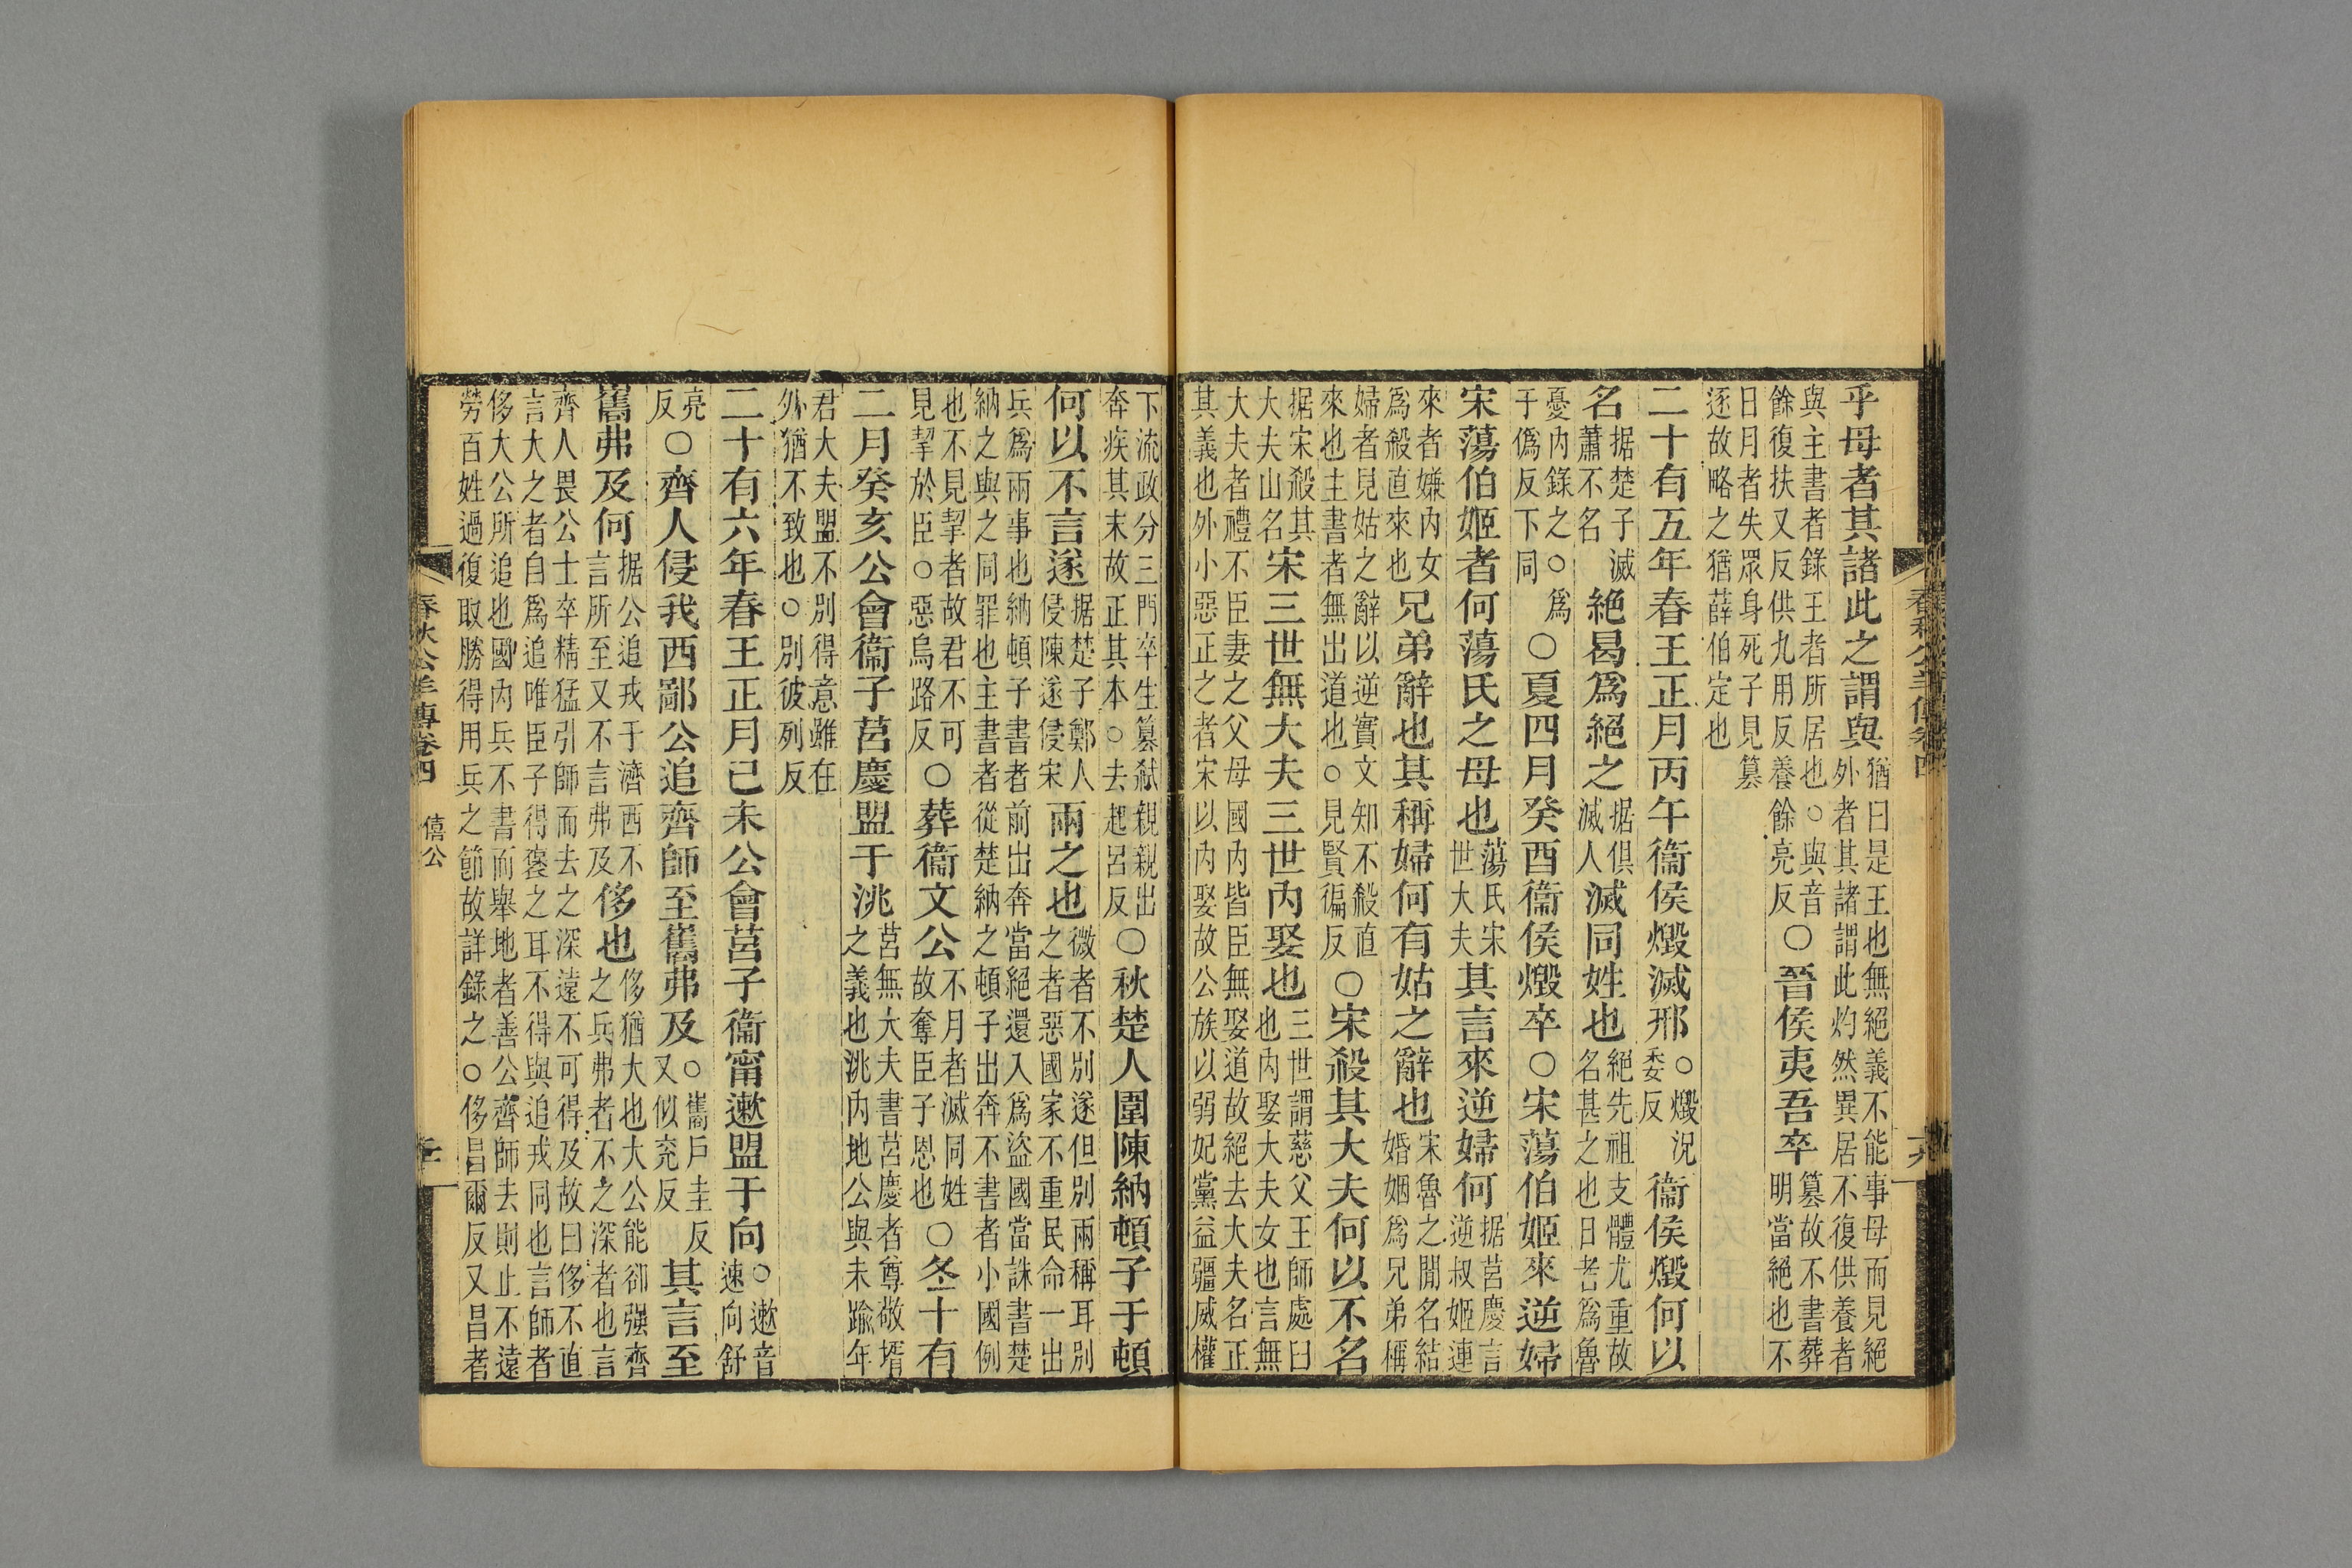 乎母者其諸此之謂與猶曰是王也無絕義不能事母而見絕
外者其諸謂此灼然異居不復供養者
與主書者錄王者所居也○與音
餘復扶又反供九用反養餘亮反○晉侯夷吾卒篡故不書葬
明當絕也不
日月者失眾身死子見篡
逐故略之猶薛伯定也
二十有五年春王正月丙午衞侯燬滅邢○燬況
委反衞侯燬何以
名据楚子滅
蕭不名絕曷爲絕之据俱
滅人滅同姓也絕先祖支體尤重故
名甚之也日者爲魯
憂內錄之○爲
于僞反下同○夏四月癸酉衞侯燬卒○宋蕩伯姬來逆婦
宋蕩伯姬者何蕩氏之母也蕩氏宋
世大夫其言來逆婦何据莒慶言
逆叔姬連
來者嫌內女
爲殺直來也兄弟辭也其稱婦何有姑之辭也宋魯之間名結
婚姻爲兄弟稱
婦者見姑之辭以逆實文知不殺直
來也主書者無出道也○見賢徧反○宋殺其大夫何以不名
据宋殺其
大夫山名宋三世無大夫三世內娶也三世謂慈父王師處臼
也內娶大夫女也言無
大夫者禮不臣妻之父母國內皆臣無娶道故絕去大夫名正
其義也外小惡正之者宋以內娶故公族以弱妃黨益疆威權
下流政分三門卒生篡弒親親出
奔疾其末故正其本○去起呂反○秋楚人圍陳納頓子于頓
何以不言遂据楚子鄭人
侵陳遂侵宋兩之也微者不別遂但別兩稱耳別
之者惡國家不重民命一出
兵爲兩事也納頓子書者前出奔當絕還入爲盜國當誅書楚
納之與之同罪也主書者從楚納之頓子出奔不書者小國例
也不見挈者故君不可
見挈於臣○惡烏路反○葬衞文公不月者滅同姓
故奪臣子恩也○冬十有
二月癸亥公會衞子莒慶盟于洮莒無大夫書莒慶者尊敬壻
之義也洮內地公與未踰年
君大夫盟不別得意雖在
外猶不致也○別彼列反
二十有六年春王正月己未公會莒子衞甯遬盟于向○遬音
速向舒
亮
反○齊人侵我西鄙公追齊師至巂弗及○巂戶圭反
又似兖反其言至
巂弗及何据公追戎于濟西不
言所至又不言弗及侈也侈猶大也大公能卻强齊
之兵弗者不之深者也言
齊人畏公士卒精猛引師而去之深遠不可得及故曰侈不直
言大之者自爲追唯臣子得襃之耳不得與追戎同也言師者
侈大公所追也國內兵不書而舉地者善公齊師去則止不遠
勞百姓過復取勝得用兵之節故詳錄之○侈昌爾反又昌者
春秋公羊傳卷四 僖公